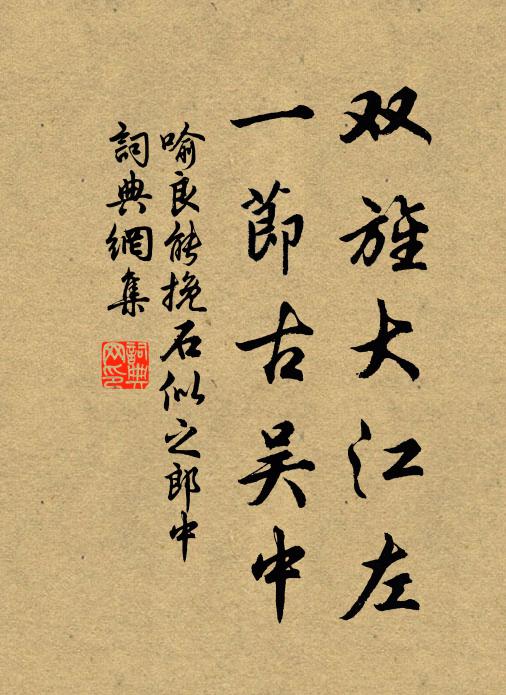 双旌大江左
一節古吴中
喻良能挽石似之郎中
詞典網集
詞典网印